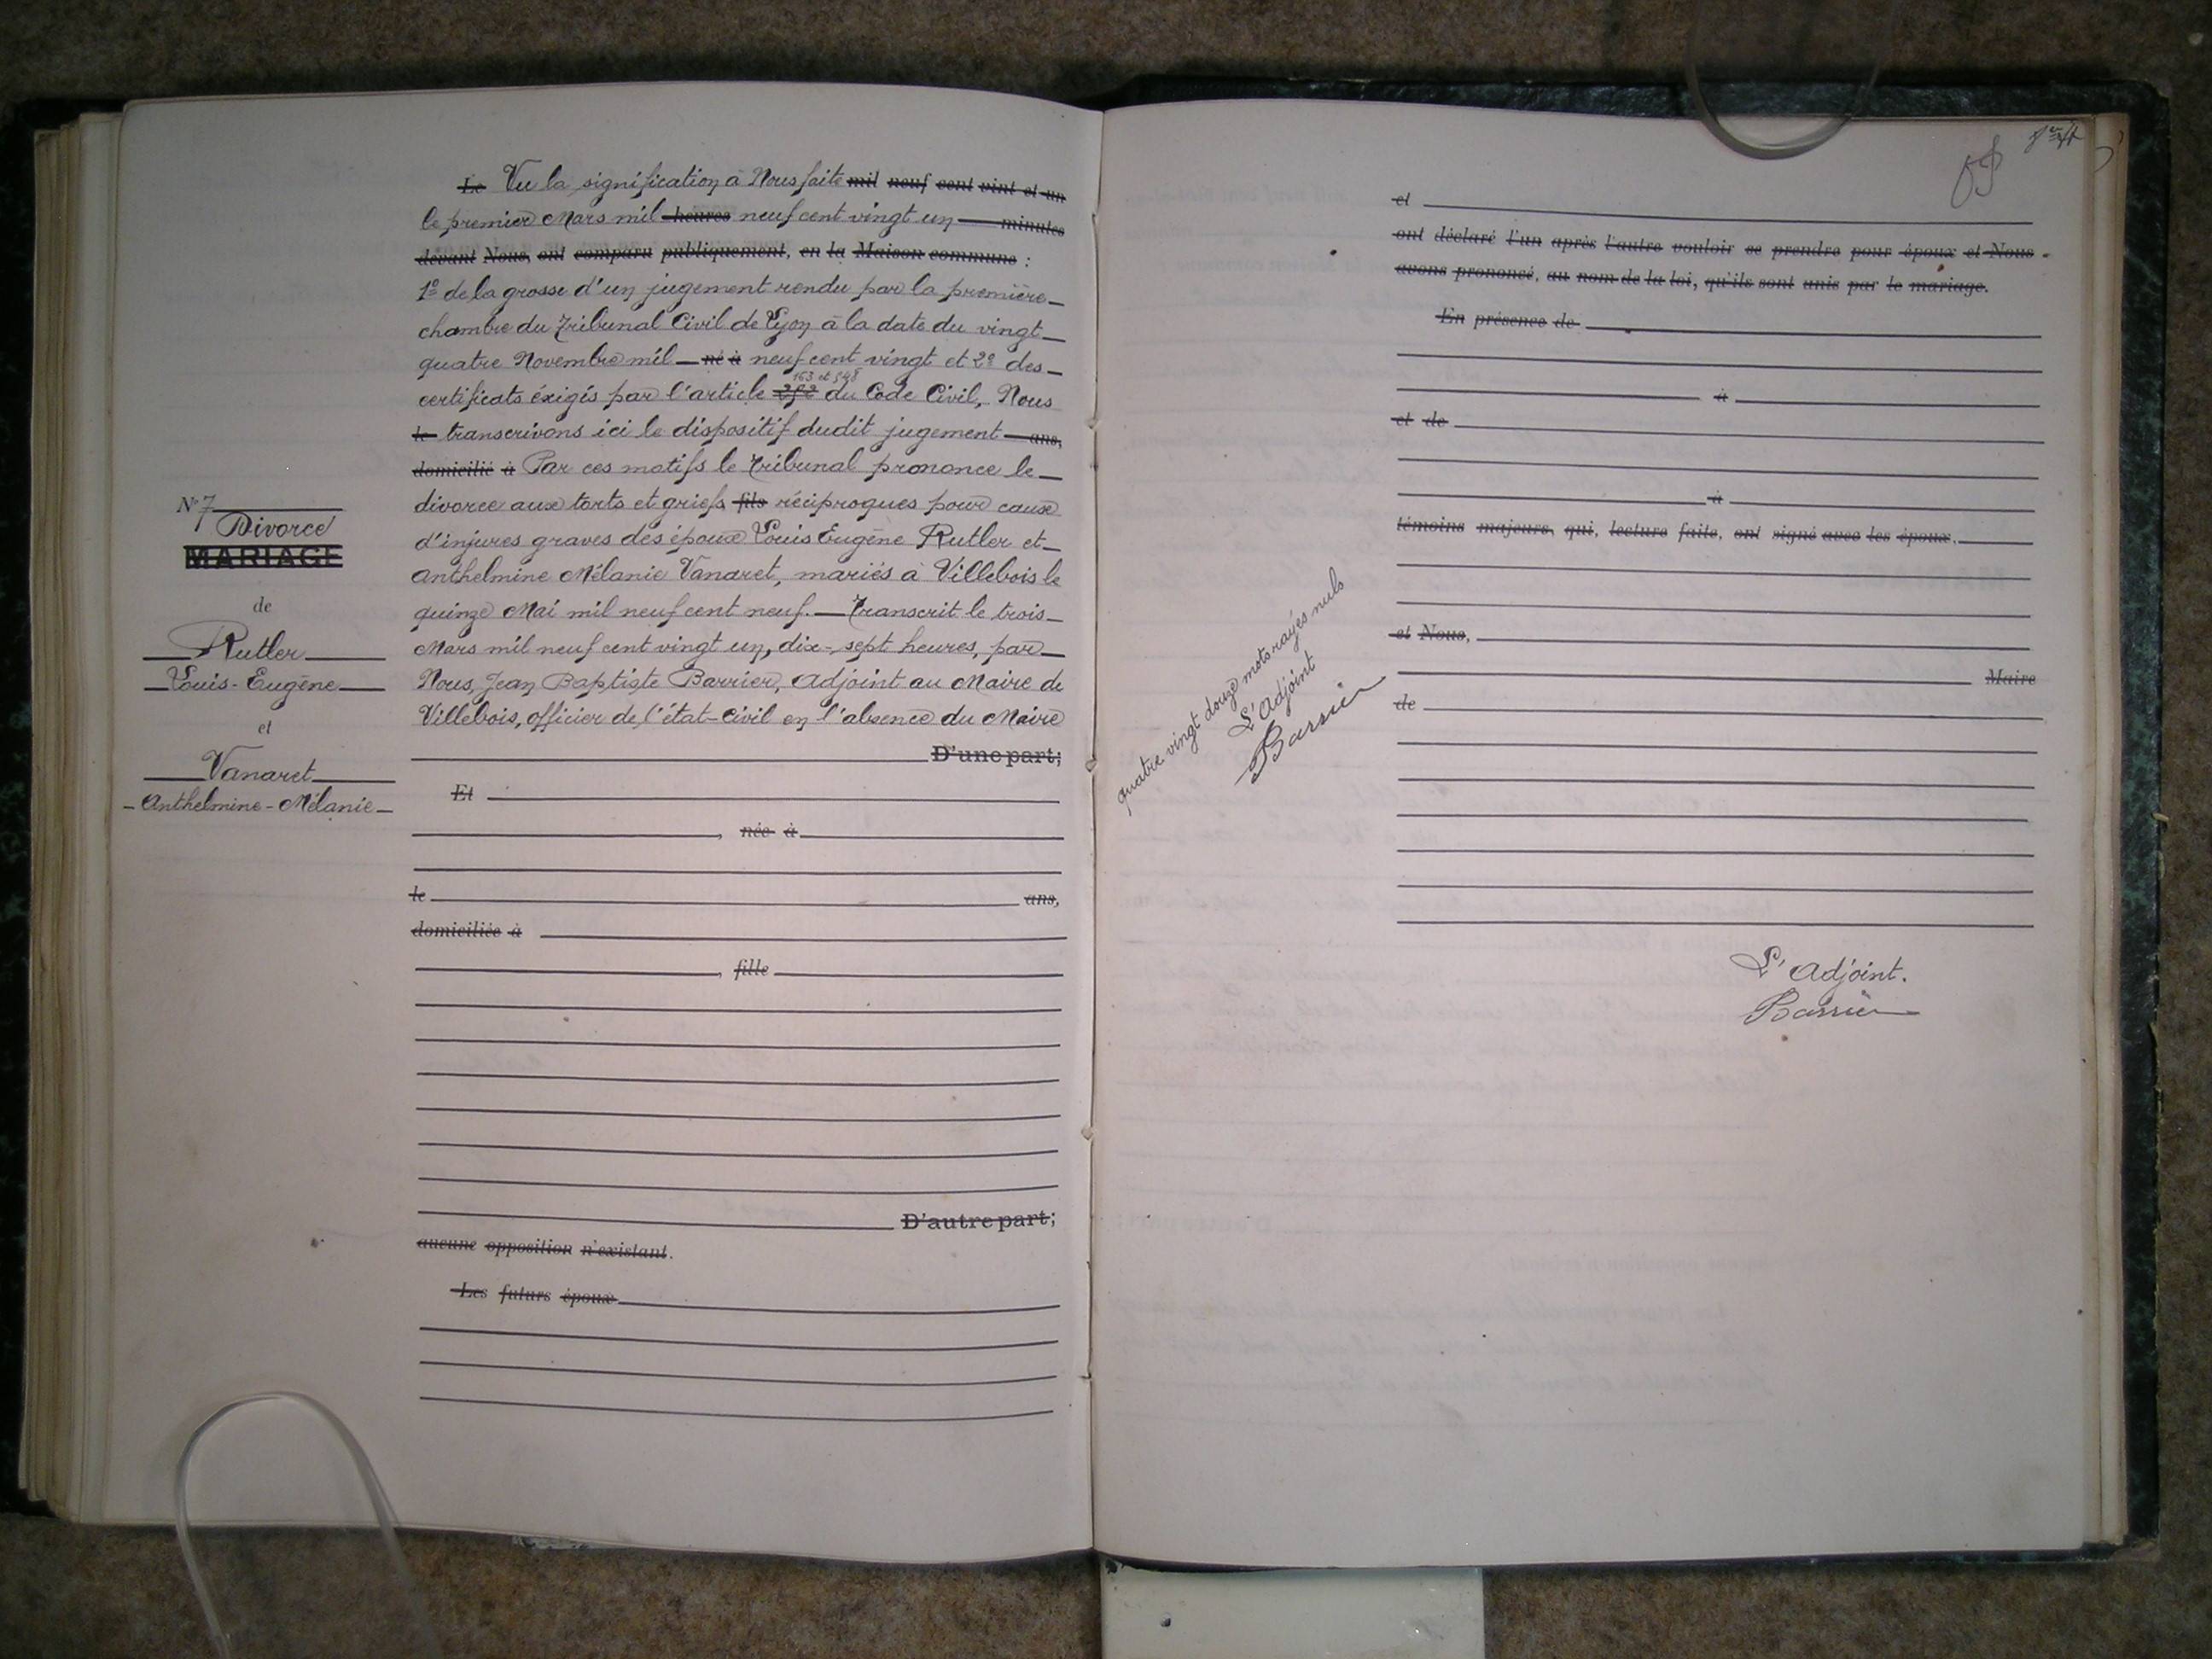 N° 7
Divorce
MARIAGE
de
Rutler
Louis-Eugène
et
Vanaret
Anthelmine-Mélanie
Le Vu la signification à Nous faite mil neuf cent vint et un
le premier Mars mil heures neuf cent vingt un minutes
devant Nous, ont comparu publiquement, en la Maison commune :
1° de la grosse d'un jugement rendu par la première
chambre du Tribunal Civil de Lyon à la date du vingt
quatre Novembre mil né à neuf cent vingt et 2° des
163 et 548
certificats éxigés par l'article 252 du Code Civil, Nous
le transcrivons ici le dispositif dudit jugement ans,
domicilié à Par ces motifs le Tribunal prononce le
divorce aux torts et griefs fils réciproques pour cause
d'injures graves des époux Louis Eugène Rutler et
Anthelmine Mélanie Vanaret, mariés à Villebois le
quinze Mai mil neuf cent neuf. Transcrit le trois
Mars mil neuf cent vingt un, dix-sept heures, par
Nous, Jean Baptiste Barrier, Adjoint au Maire de
Villebois, officier de l'état-civil en l'absence du Maire
D'une part;
Et
, née à
le ans,
domiciliée à
, fille
D'autre part;
aucune opposition n'existant.
Les futurs époux
et
ont déclaré l'un après l'autre vouloir se prendre pour époux et Nous
avons prononcé, au nom de la loi, qu'ils sont unis par le mariage.
En présence de
à
et de
à
témoins majeurs, qui, lecture faite, ont signé avec les époux.
et Nous,
Maire
de
quatre vingt douze mots rayés nuls
L'Adjoint
Barrier
L'Adjoint.
Barrier